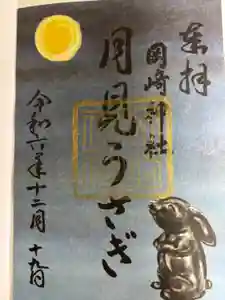 奉拝
岡崎神社
月見うさぎ
令和六年十二月十九日